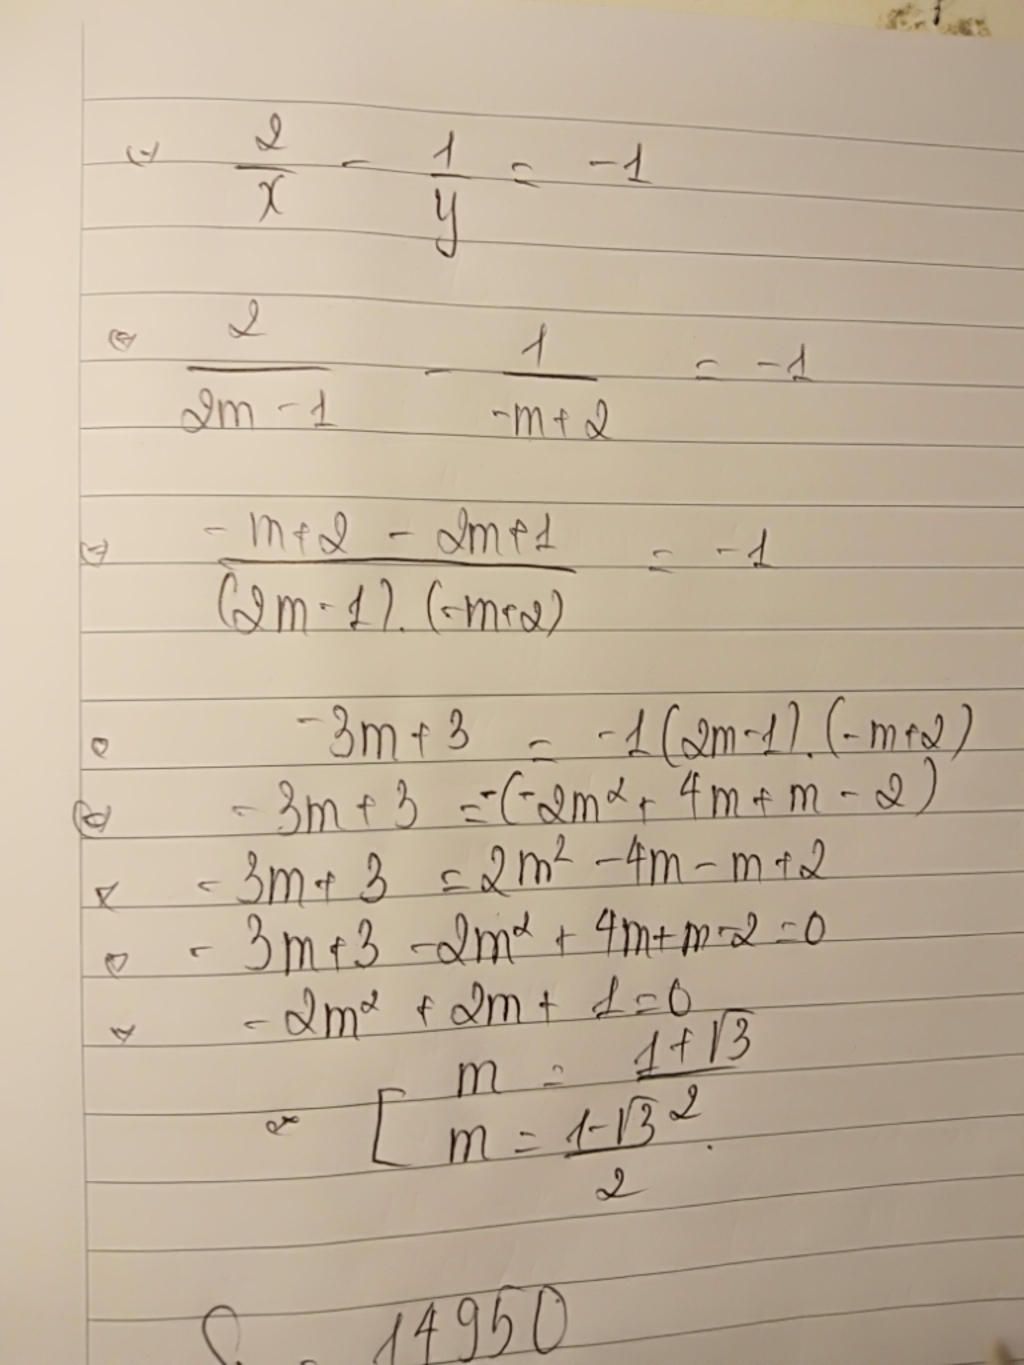 ⇔ 2/x - 1/y = -1
⇔ 2/(2m - 1) - 1/(-m + 2) = -1
⇔ (-m + 2 - 2m + 1)/((2m - 1).(-m + 2)) = -1
⇔ -3m + 3 = -1(2m - 1).(-m + 2)
⇔ -3m + 3 = -(-2m² + 4m + m - 2)
⇔ -3m + 3 = 2m² - 4m - m + 2
⇔ -3m + 3 - 2m² + 4m + m - 2 = 0
⇔ -2m² + 2m + 1 = 0
⇔ [ m = (1 + √3)/2
m = (1 - √3)/2 .
= 14950